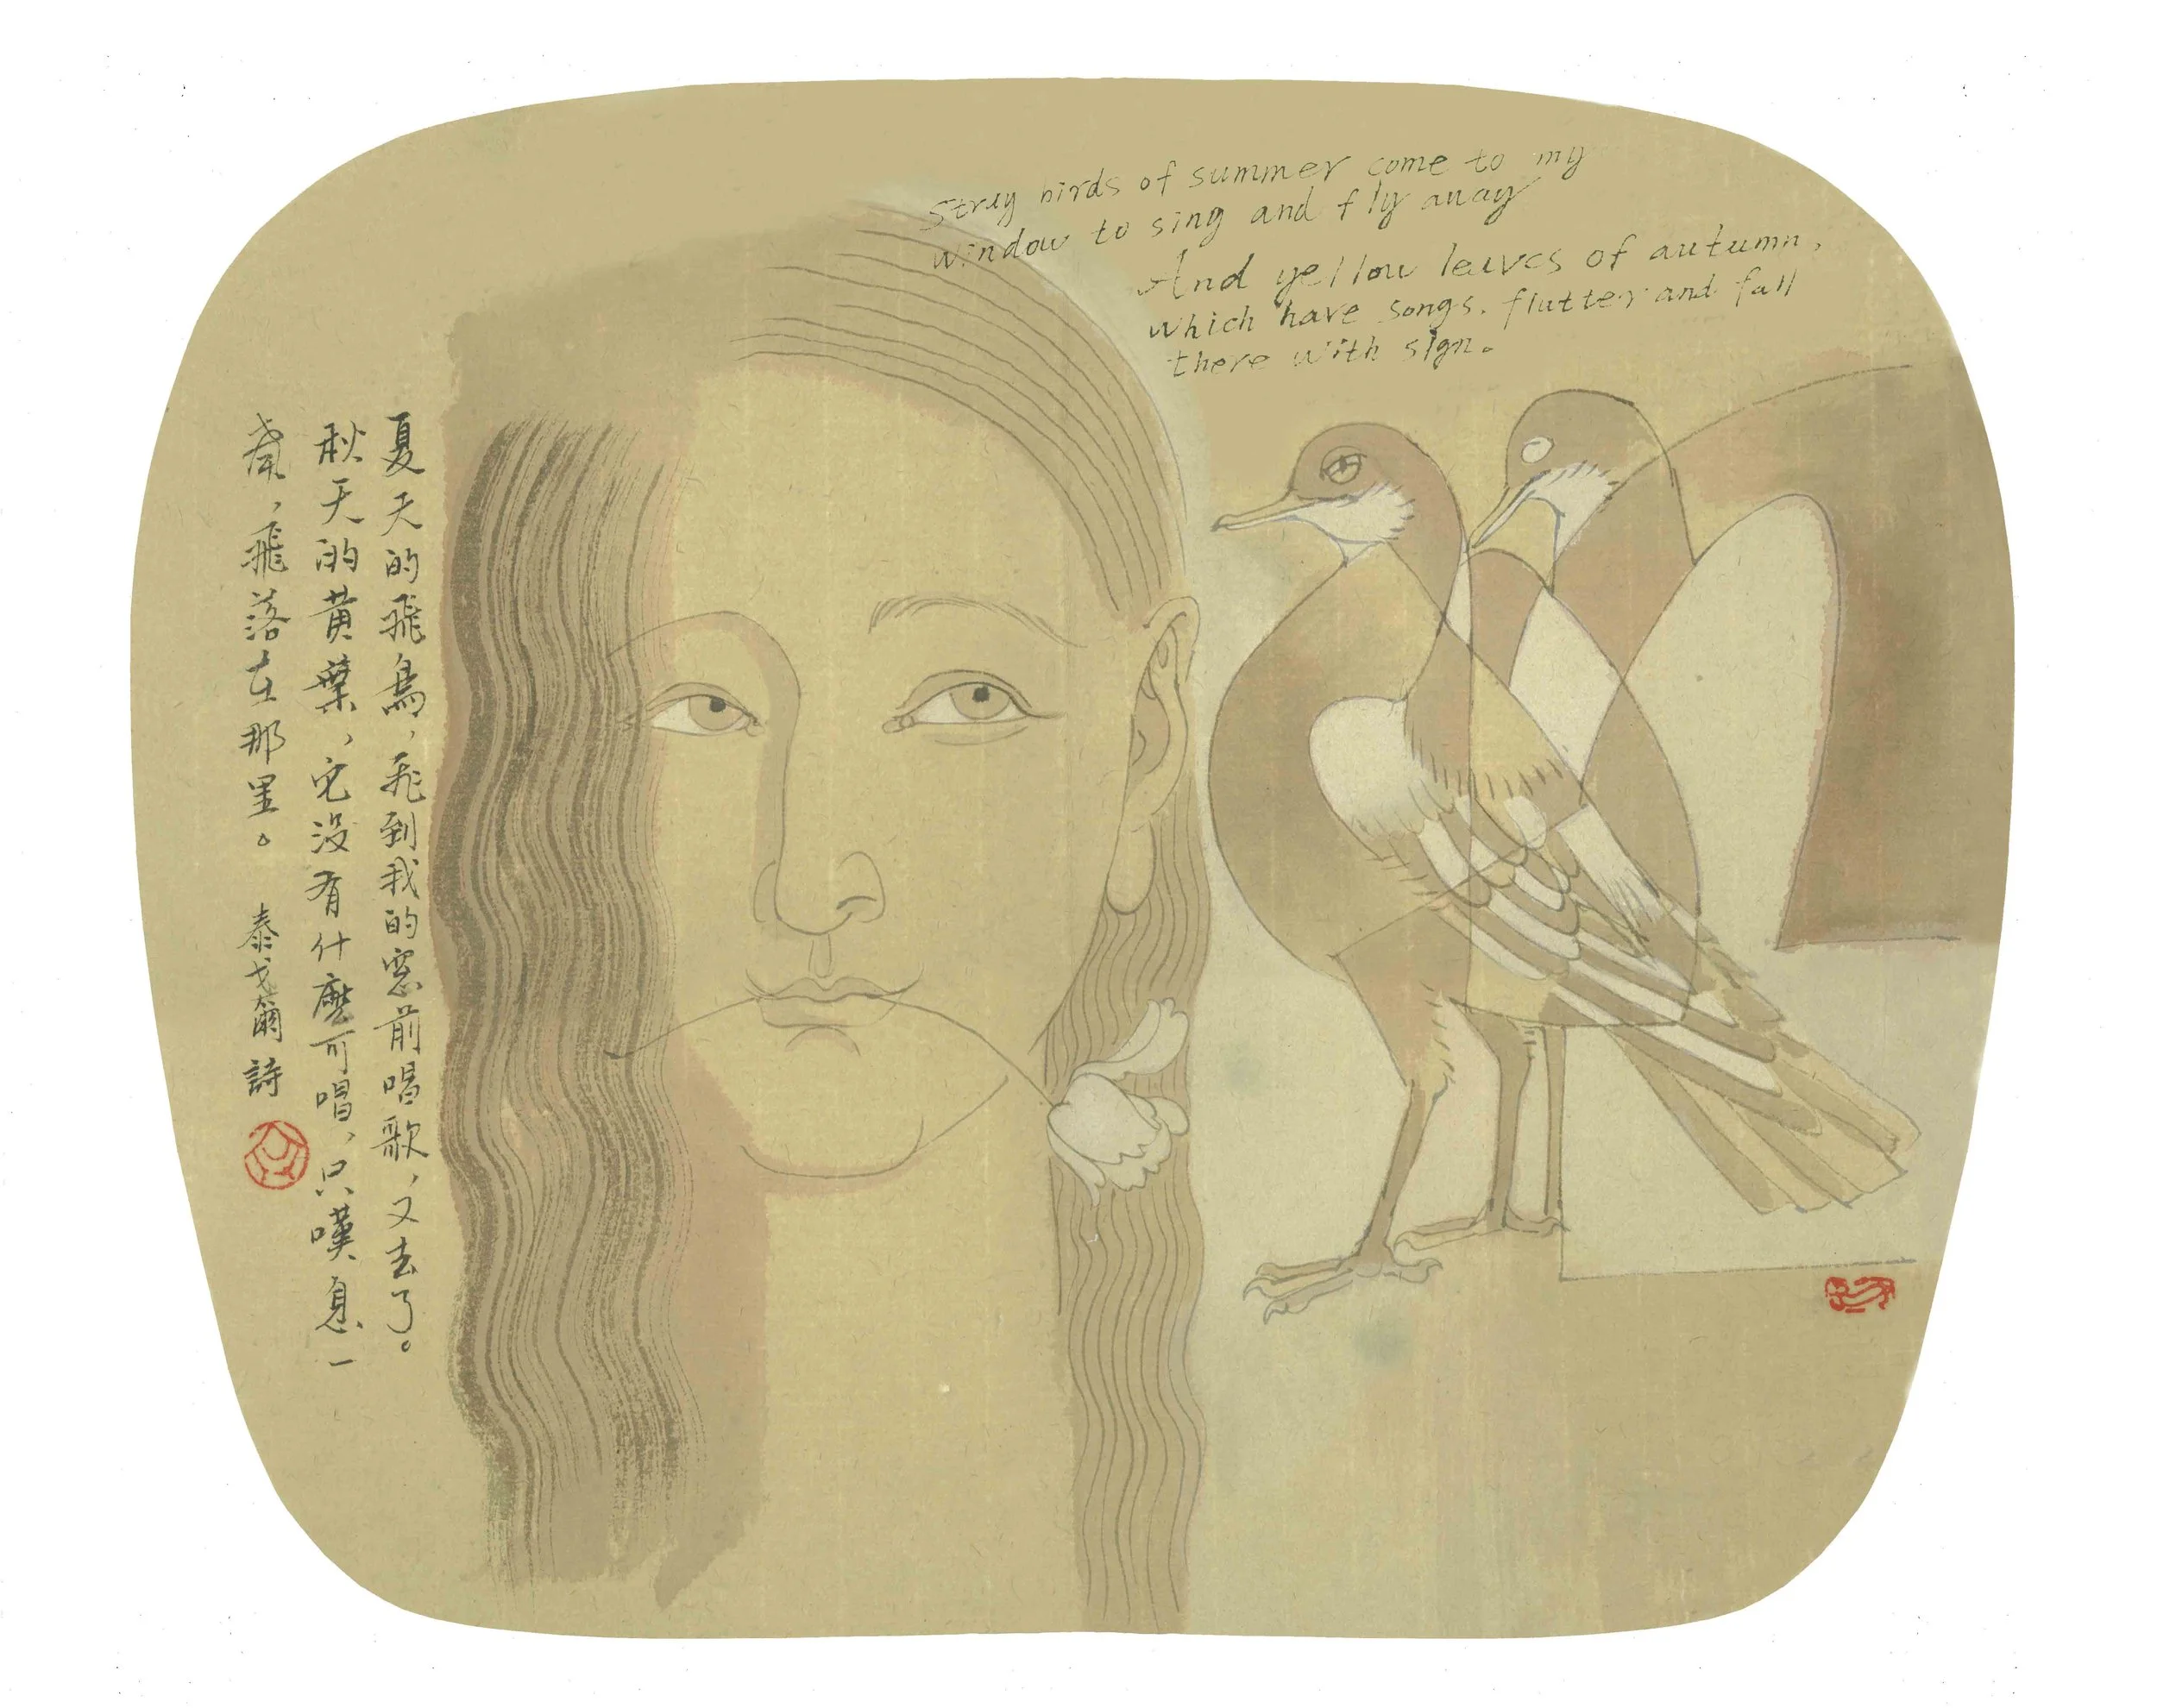 Stray birds of summer come to my
window to sing and fly away
And yellow leaves of autumn,
which have songs. flutter and fall
there with sign.
夏天的飛鳥，飛到我的窓前唱歌，又去了。
秋天的黄葉，它没有什麽可唱，只嘆息一
聲，飛落在那里。 泰戈爾詩